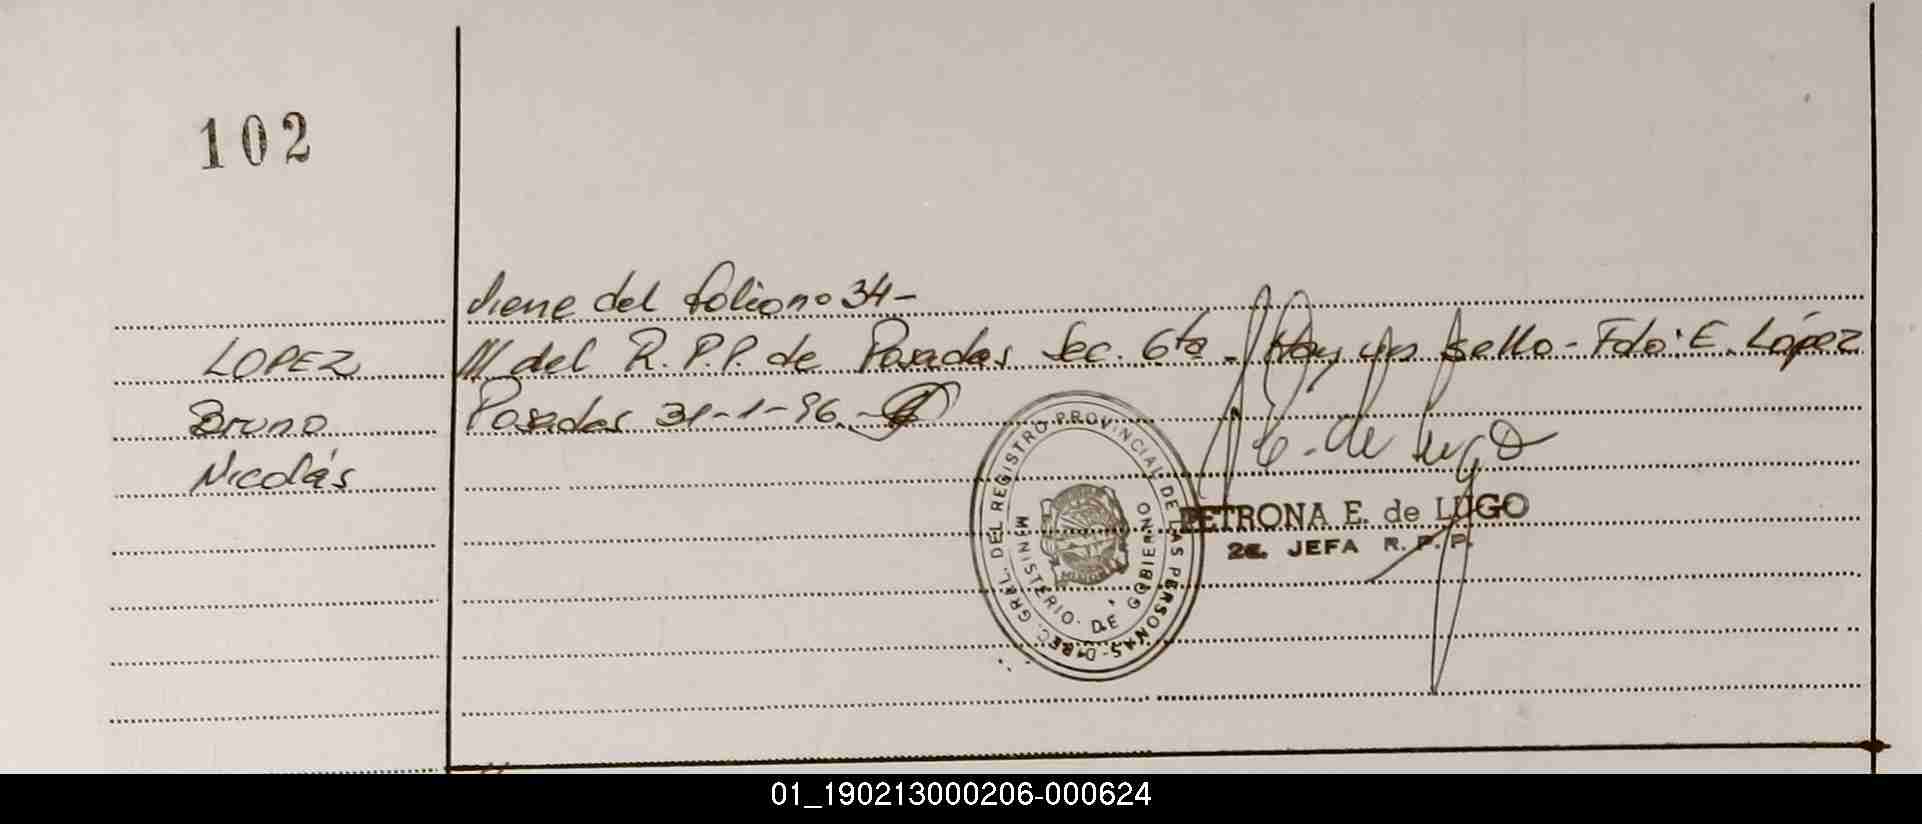 102
Viene del folio no 34-
LOPEZ
/// del R.P.P. de Posadas Sec. 6ta - Hay un sello - Fdo: E. López
Bruno
Posadas 31-1-96.-
Nicolás
E. de Lugo
PETRONA E. de LUGO
2a. JEFA R. P. P.
DIREC. GRAL. DEL REGISTRO PROVINCIAL DE LAS PERSONAS
MINISTERIO DE GOBIERNO
01_190213000206-000624